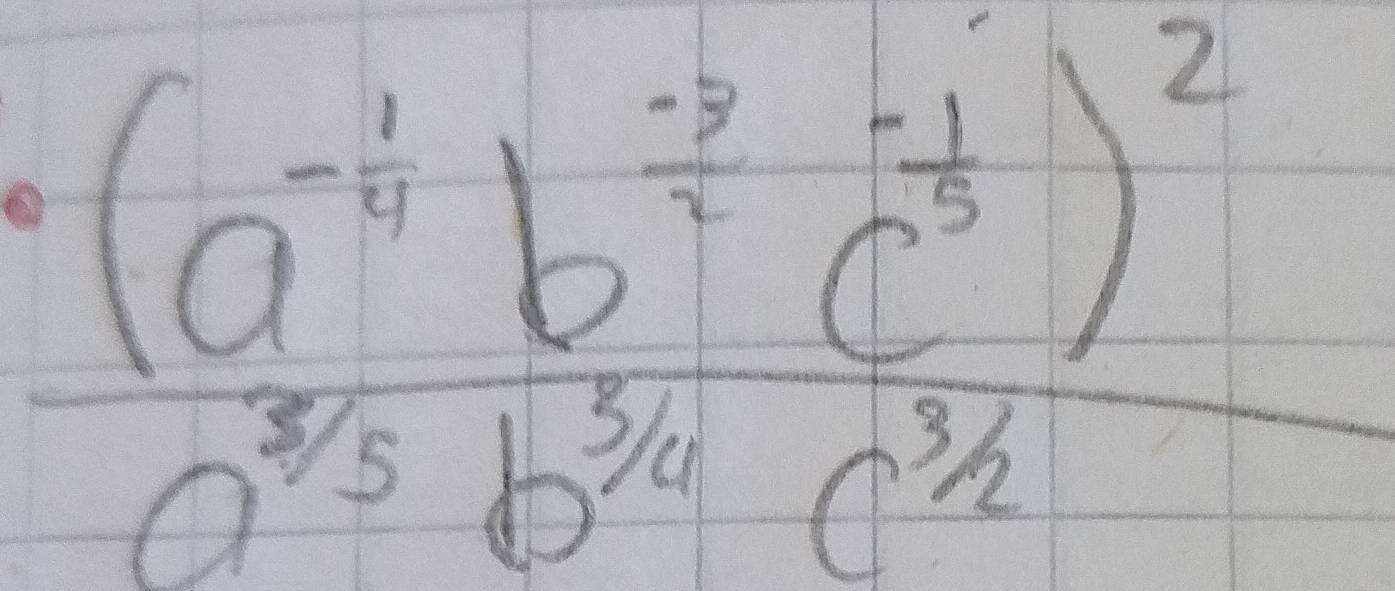 (a^{-\frac{1}{4}} b^{\frac{-3}{2}} c^{-\frac{1}{5}})^2
a^{3/5} b^{3/4} c^{3/2}